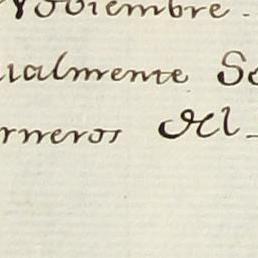 Noviembre.
ualmente Se
rneros del